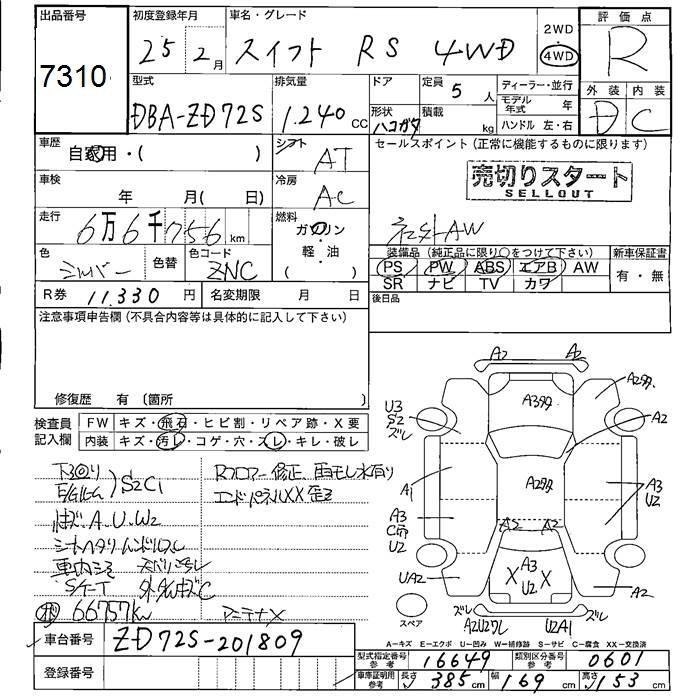 出品番号
7310
初度登録年月
25年2月
車名・グレード
スイフト RS 4WD
2WD
4WD
評価点
R
外装 内装
D C
型式
DBA-ZD72S
排気量
1.240 cc
ドア
形状
ハコガタ
定員 5人
積載 kg
ディーラー・並行
モデル年式 年
ハンドル 左・右
車歴
自家用・( )
シフト
AT
セールスポイント(正常に機能するものに限ります)
売切りスタート
SELLOUT
車検
年 月( 日)
冷房
AC
走行
6万6千756km
燃料
ガソリン
軽・油
( )
社外AW
色
シルバー
色替
色コード
ZNC
装備品(純正品に限り○をつけて下さい)
PS PW ABS エアB AW
SR ナビ TV カワ
新車保証書
有・無
R券 11.330円
名変期限 月 日
後日品
注意事項申告欄(不具合内容等は具体的に記入して下さい)
修復歴 有(箇所 )
検査員記入欄
FW キズ・飛石・ヒビ割・リペア跡・X要
内装 キズ・汚レ・コゲ・穴・スレ・キレ・破レ
下回り
S2C1
A.U.W2
シートヘタリ ハンドルスレ
Rフロアー修正、雨モレ水有り
エンドパネルXX歪ミ
66757km
アンテナX
A2 A2
A3タタ
A2タタ
U3
S2
ズレ
A2
A2タタ
A1
A3
U2
A3
U2
A2 A2
A3
X X
U2
UA2
A2
スペア
ズレ
ズレ
A2U2ワレ
U2A1
A-キズ E-エクボ U-凹み W-補修跡 S-サビ C-腐食 XX-交換済
車台番号 ZD72S-201809
登録番号
型式指定番号参考 16649
類別区分番号参考 0601
車庫証明用参考 長さ 385cm 幅 169cm 高さ 153cm